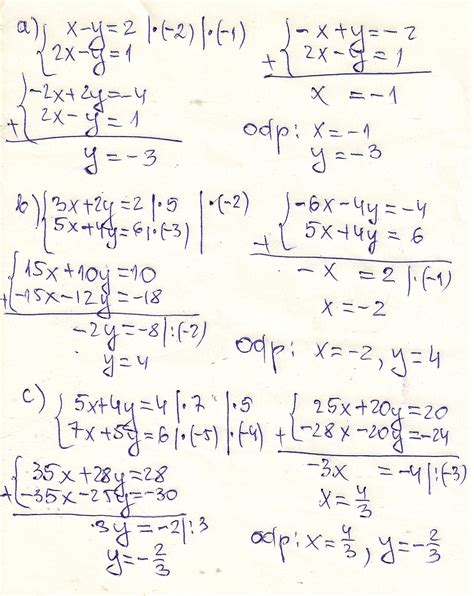 a) { x-y=2 |·(-2) |·(-1)
2x-y=1
+ { -2x+2y=-4
2x-y=1
y=-3
+ { -x+y=-2
2x-y=1
x = -1
odp: x=-1
y=-3
b) { 3x+2y=2 |·5 | ·(-2)
5x+4y=6 |·(-3) |
+ { 15x+10y=10
-15x-12y=-18
-2y=-8 |:(-2)
y=4
+ { -6x-4y=-4
5x+4y=6
-x = 2 |·(-1)
x=-2
odp: x=-2, y=4
c) { 5x+4y=4 |·7 | ·5
7x+5y=6 |·(-5) | ·(-4)
+ { 35x+28y=28
-35x-25y=-30
3y=-2 |:3
y=-2/3
+ { 25x+20y=20
-28x-20y=-24
-3x = -4 |:(-3)
x=4/3
odp: x=4/3, y=-2/3